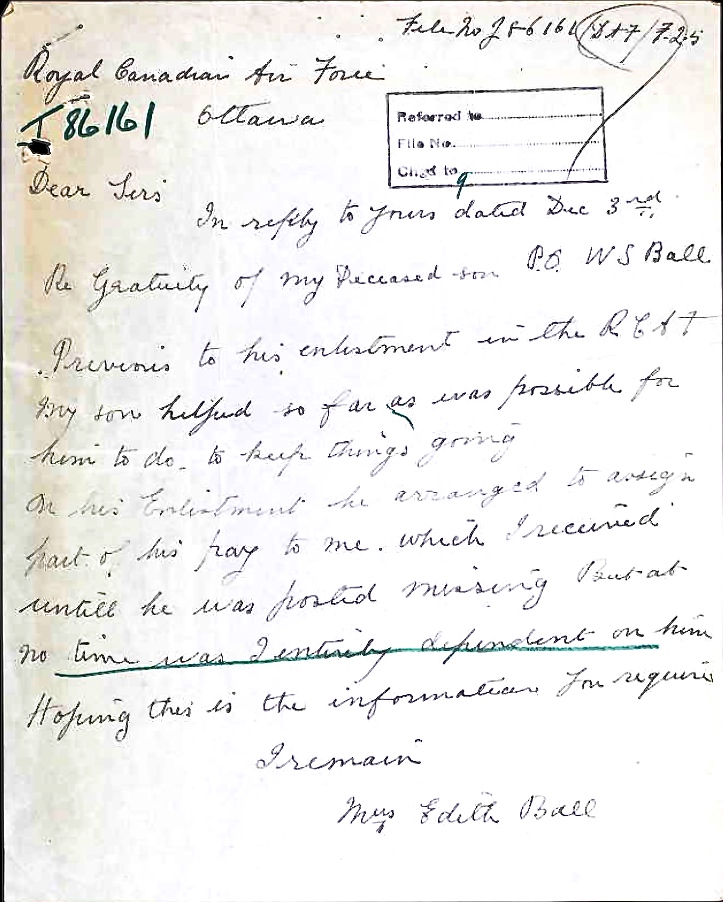 File No J86161 (DAF/7-25
Royal Canadian Air Force
J 86161 Ottawa
Referred to
File No.
Chgd to
Dear Sirs
In reply to yours dated Dec 3rd.
Re Gratuity of my Deceased son P.O. W S Ball
Previous to his enlistment in the R C A F
my son helped so far as was possible for
him to do. to keep things going
On his Enlistment he arranged to assign
part of his pay to me. which I received
untill he was posted missing But at
no time was I entirely dependent on him
Hoping this is the information you require
I remain
Mrs Edith Ball